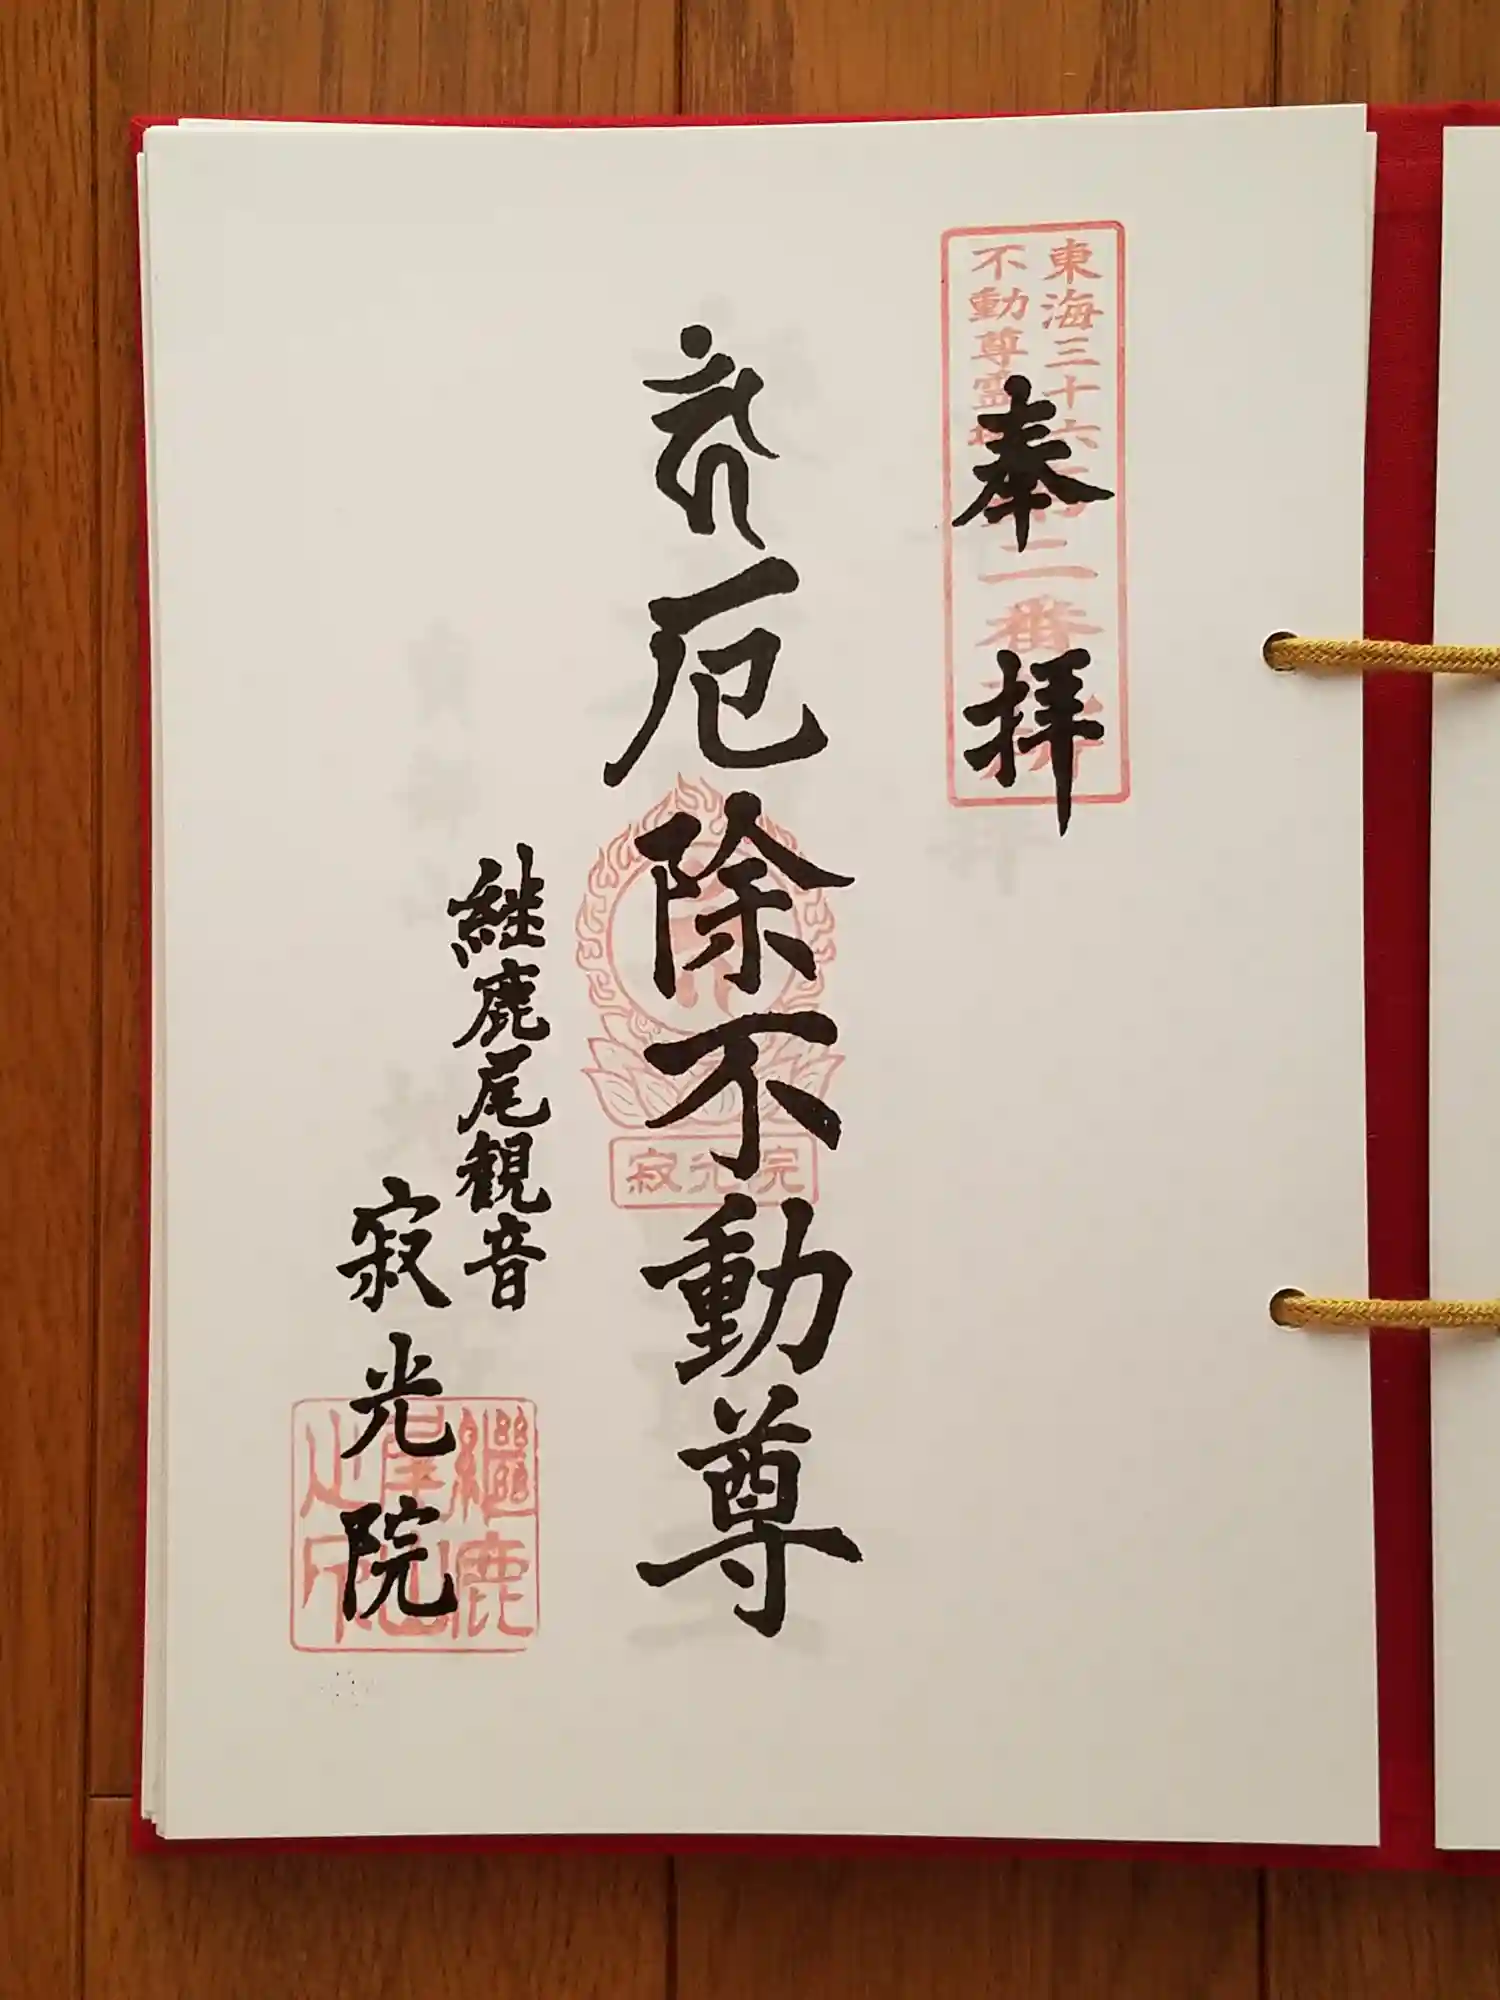 東海三十六
不動尊霊場
第二番札所
奉拝
厄除不動尊
寂光院
継鹿尾観音
寂光院
継鹿
尾山